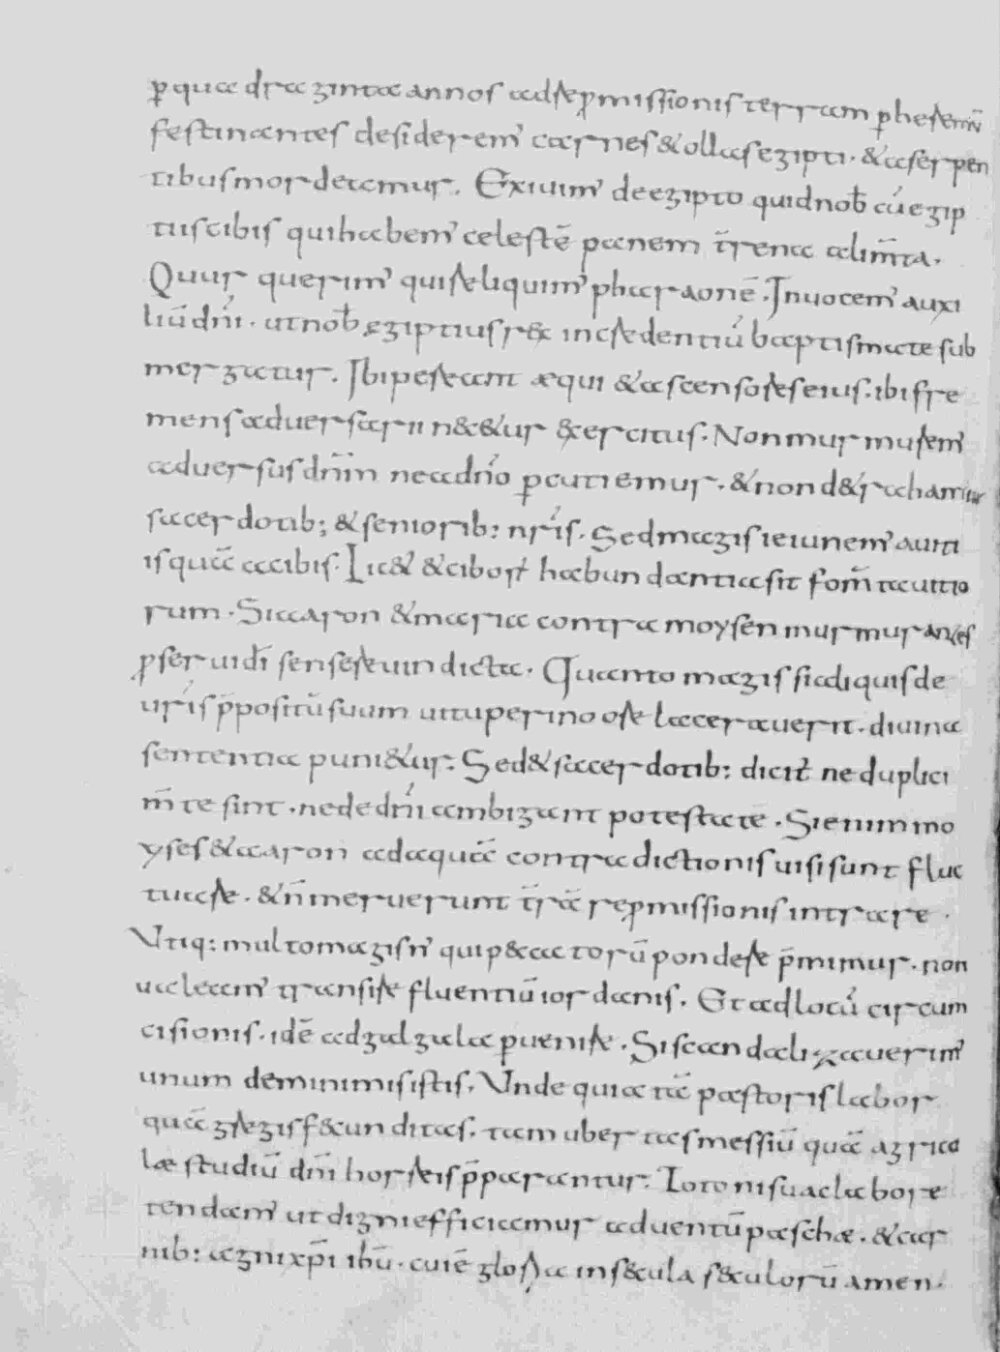 ꝑ quadraginta annos adrepmissionis terram pheremū
festinantes desiderem᾽ carnes & ollas egipti · & aserpen
tibus mordeamur. Exiuim᾽ deegipto quid nob̄ cū egip
tus cibis qui habem᾽ celestē panem t̄rena alim̄ta.
Quur querim᾽ qui reliquim᾽ pharaonē. Inuocem᾽ auxi
liū dn̄i · ut nob̄ egiptius rex in credentiū baptismate sub
mergatur. Ibi pereant æqui & ascensores eius. ibi fre
mens aduersarii nec&ur exercitus. Non murmurem᾽
aduersus dn̄m ne adn̄o ꝑcutiemur. & non d&rahamur
sacerdotib; & seniorib: nr̄is. Sed magis ieiunem᾽ auiti
is quā acibis. Lic& & cibor habundantia sit fom̄ta uitio
rum. Si aaron & maria contra moysen murmurantes
ꝓseruidi sensere uindicta. Quanto magis siadiquis de
ur̄is p̄positū suum uituperino ore lacerauerit. diuina
sententia puni&ur: Sed & sacerdotib: dicit̄ ne duplici
m̄te sint. nede dn̄i ambigant potestate. Si enim mo
yses & aaron adaquā contradictionis uisi sunt fluc
tuare. & n̄ meruerunt t̄rā repmissionis intrare.
Utiq: multo magis n᾽ qui p&catorū pondere p̄mimur. non
ualeam᾽ transire fluentiū iordanis. Et ad locū circum
cisionis. idē ad galgala ꝑuenire. Si scandalizauerim᾽
unum deminimis istis. Unde quia tā pastoris labor
quā gregis f&unditas. tam ubertas messiū quā agrico
læ studiū dn̄i horreis p̄parantur. Toto nisu aclabore
tendam᾽ ut digni efficiamur aduentū paschæ. & car
nib: agni xp̄i ibū. cui ē gloria in s&cula s&culorū amen.